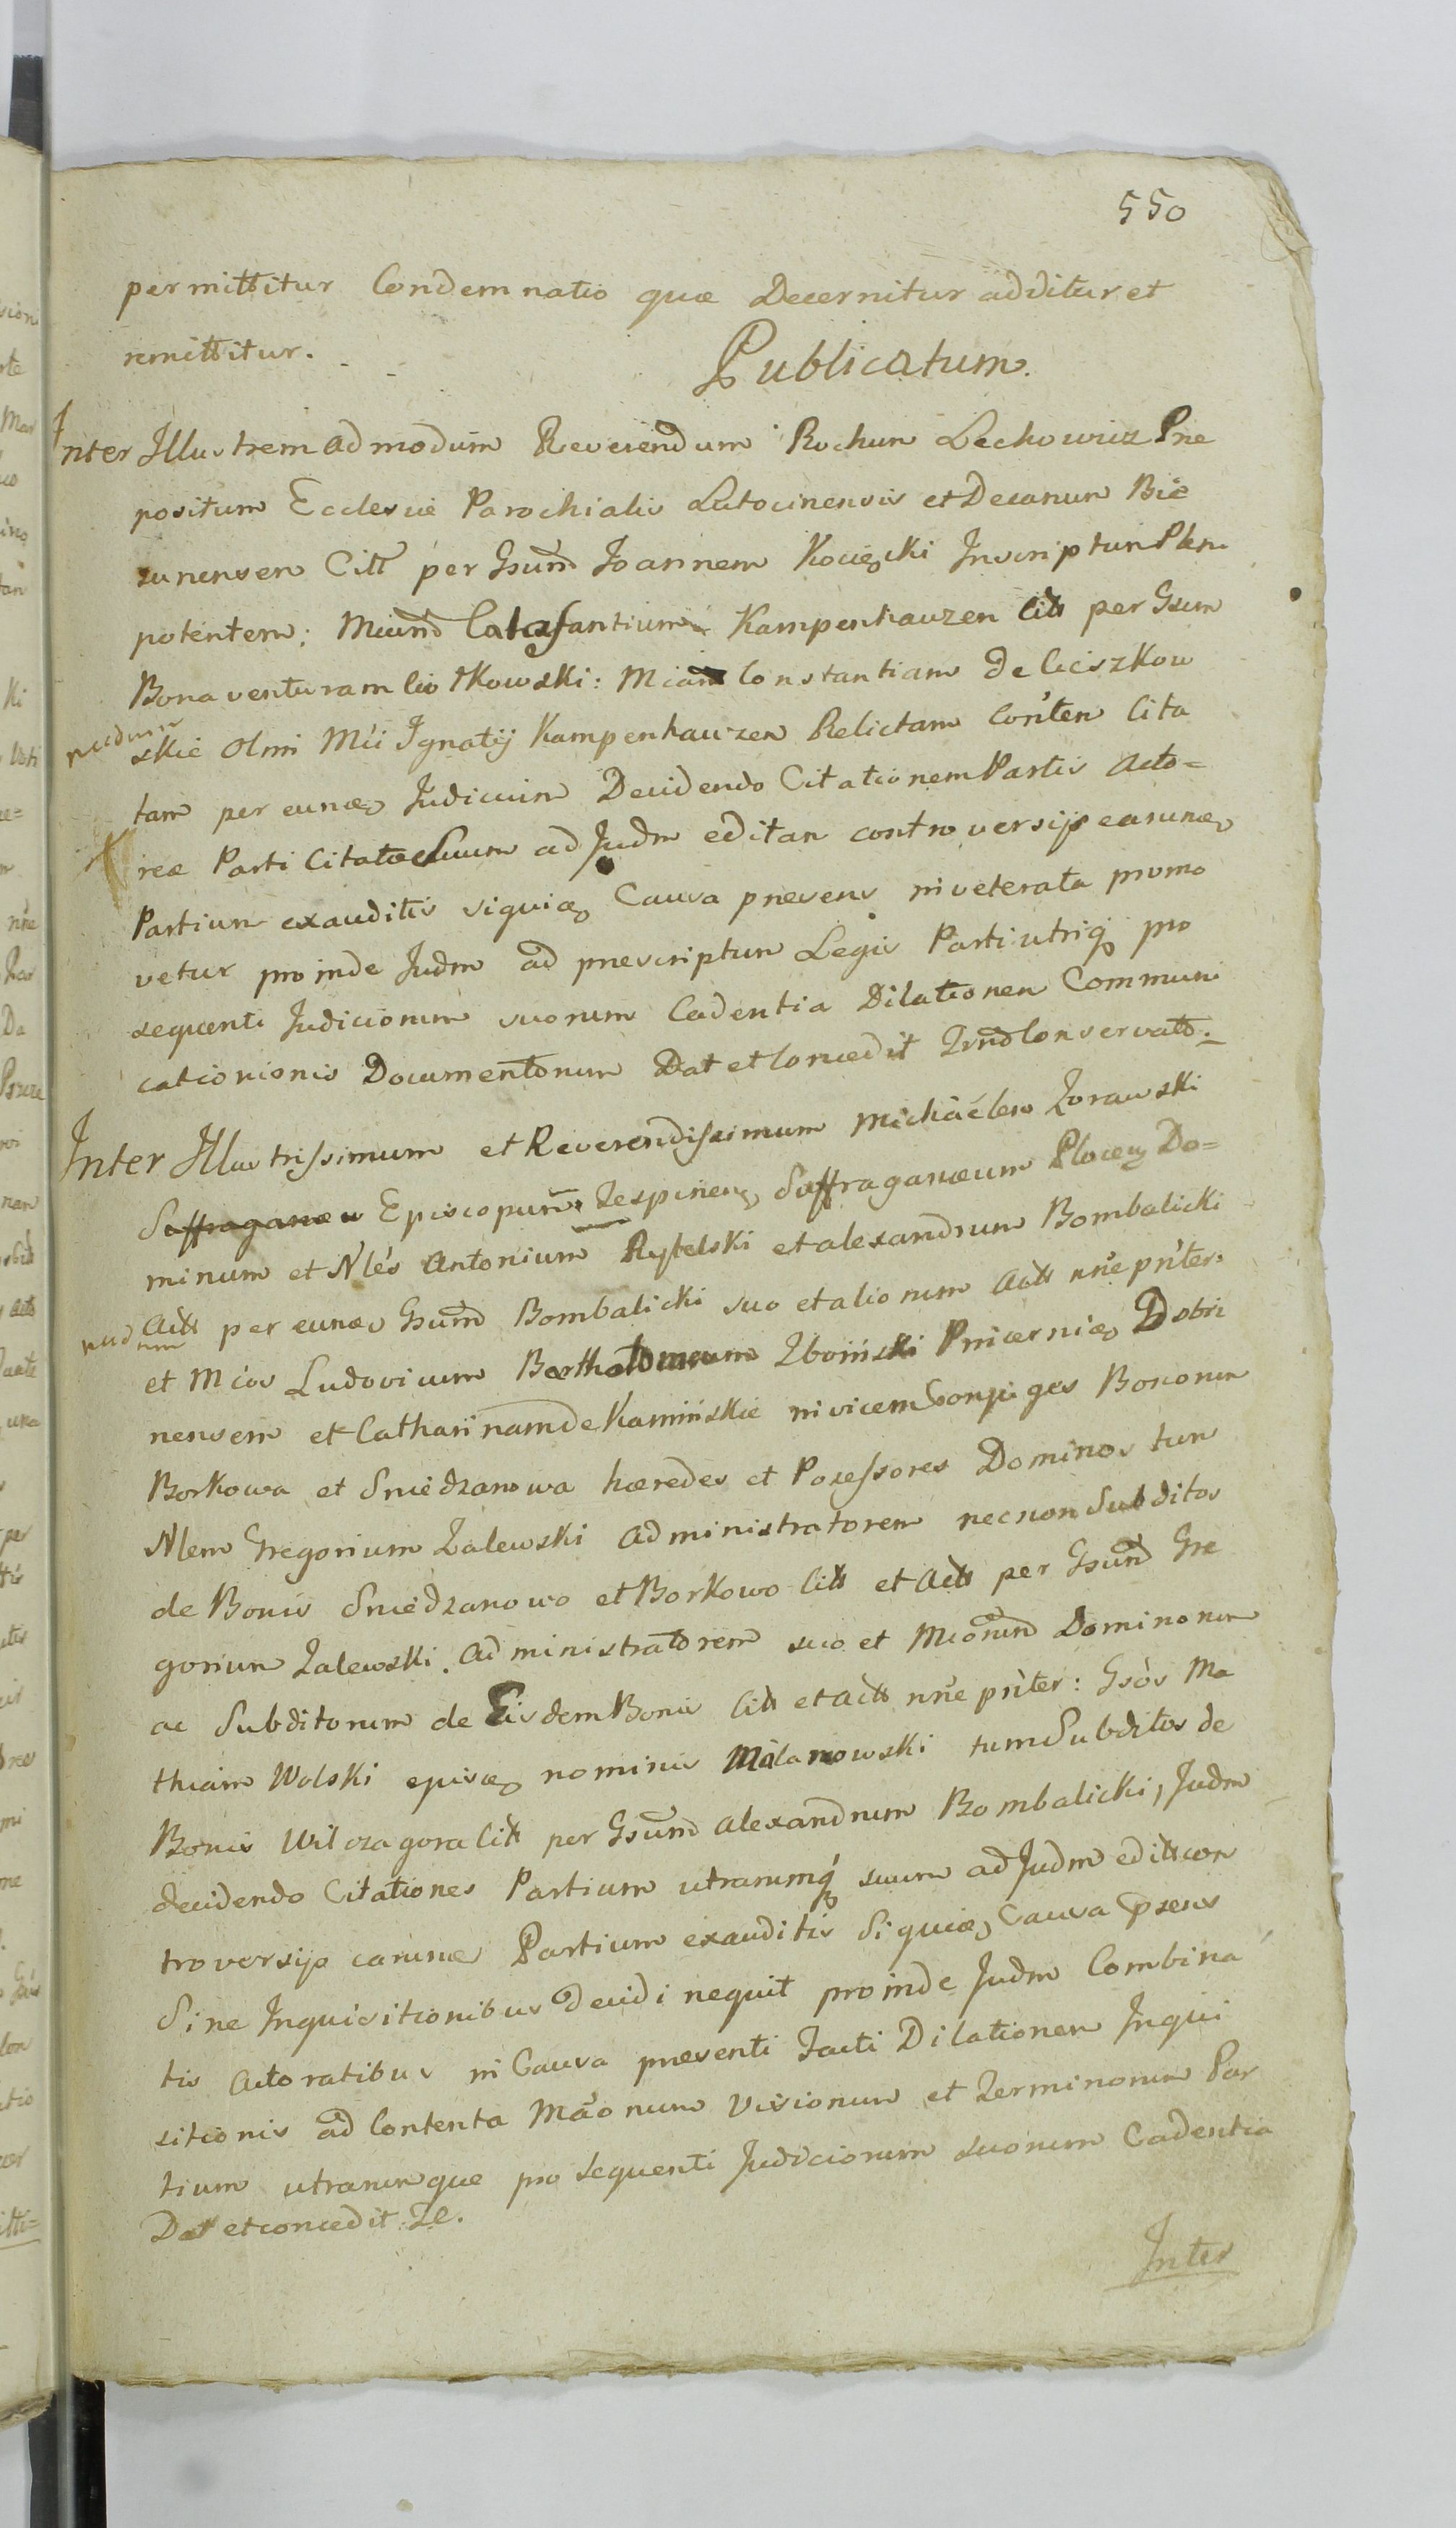 550
permittitur Condemnatio quæ Decernitur additur et
remittitur.
Publicatum.
Inter Illustrem admodum Reverendum Rochum Lechowicz Præ
positum Ecclesiæ Parochialis Lutocinensis et Decanum Bie
zunensem Citt per Gsum Joannem Kocięcki Inscriptum Pleni
potentem; Mcum Calasantium Kampenhauzen Citt per Gsum
Bonaventuram Ciotkowski: Mcam Constantiam de Ciciszkow
skie olim Mci Ignatij Kampenhauzen Relictam Conten Cita
tam per eund Judicium Decidendo Citationem Partis Acto=
reæ Parti Citatæ suum ad Judm editam controversijs earumq
Partium exauditis siquidem Causa præsens inveterata promo
vetur proinde Judm ad præscriptum Legis Parti utriq pro
sequenti Judiciorum suorum Cadentia Dilationem Communi
cationionis Documentorum Dat et Concedit Trmo Conservato.
Inter Illustrissimum et Reverendissimum Michaélem Zorawski
Suffraganeu Episcopum Zespinen Suffraganæum Plocen Do=
minum et Nles Antonium Rytelski et alexandrum Bombalicki
actt per eund Gsum Bombalicki suo et aliorum actt nñe pñter:
et Mcos Ludovicum Bartholomeum Zboiński Pincernid Dobri
nensem et Catharinam de Kamińskie invicem Conjuges Bonorum
Borkowa et Sniedzanowa hæredes et Possessores Dominos tum
Nlem Gregorium Zalewski administratorem necnon Subditos
de Bonis Sniedzanowo et Borkowo Citt et actt per Gsum Gre
gorium Zalewski. administratorem suo et Mcorum Dominorum
ac Subditorum de Eisdem Bonis Citt et actt nñe pñter: Gsos Ma
thiam Wolski ejusd nominis Milanowski tum Subditos de
Bonis Wilczagora Citt per Gsum alexandrum Bombalicki, Judm
decidendo Citationes Partium utrarumq suum ad Judm editt con
troversijs earumd Partium exauditis siquid Causa præsens
Sine Inquisitionibus decidi nequit proinde Judm Combina
tis actoratibus in Causa præsenti Facti Dilationem Inqui
sitionis ad Contenta Mãonum Visionum et Terminorum Par
tium utrarumque pro sequenti Judiciorum suorum Cadentia
Dat et concedit Te.
Inter